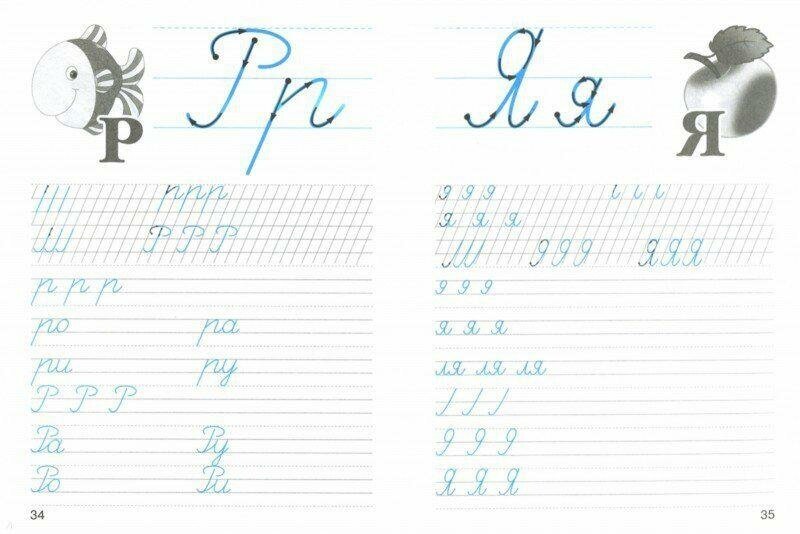 Р р
Р
ррр
Р Р Р
р р р
ро ра
ри ру
Р Р Р
Ра Ру
Ро Ри
34
Я я
Я
я я я
Я Я Я
я я я
ля ля ля
Я Я Я
35